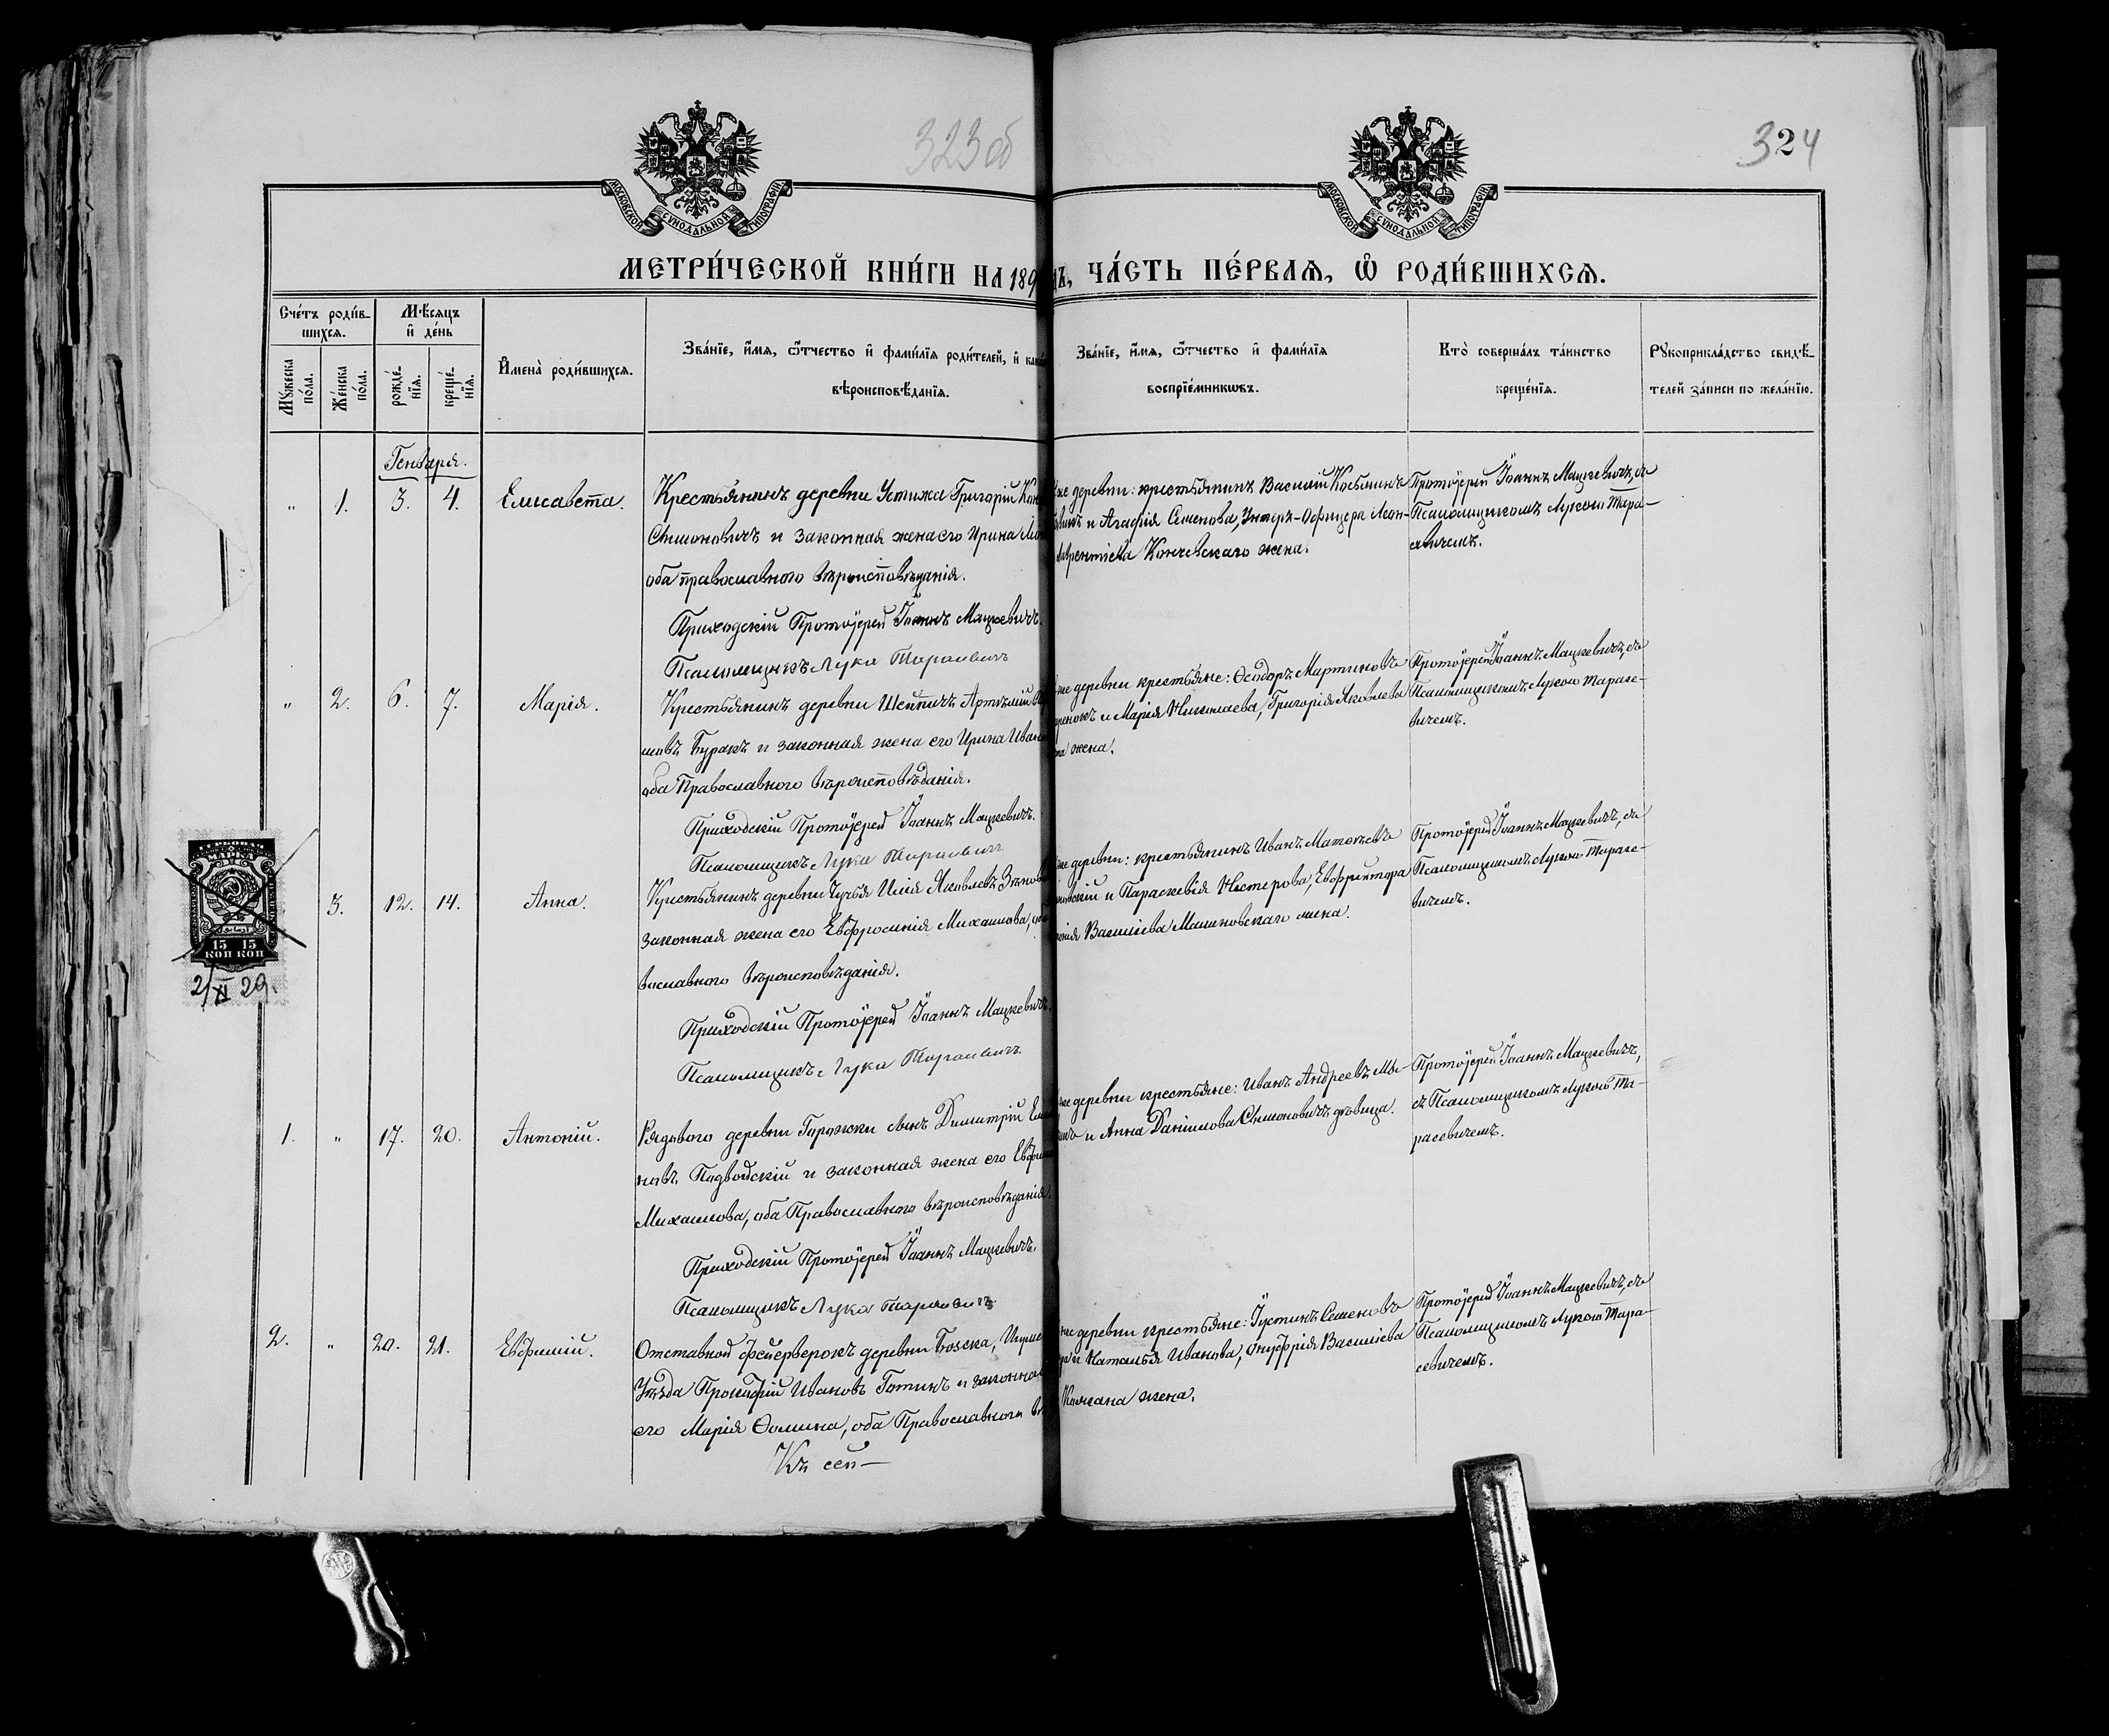 323 об
324
МОСКОВСКОЙ СУНОДАЛЬНОЙ ТИПОГРАФІИ
МОСКОВСКОЙ СУНОДАЛЬНОЙ ТИПОГРАФІИ
МЕТРИ́ЧЕСКОЙ КНИ́ГИ НА 189 ЧА́СТЬ ПЕ́РВАѦ, Ѡ҆ РОДИ́ВШИХСѦ.
Сче́тъ роди́в-
шихсѧ.
Мѣ́сѧцъ
и҆ де́нь
Мꙋ́жеска по́ла.
Же́нска по́ла.
рожде́-
нїѧ.
креще́-
нїѧ.
И҆мена̀ роди́вшихсѧ.
Зва́нїе, и҆́мѧ, ѻ҆́тчество и҆ фами́лїѧ роди́телей, и҆
вѣроисповѣ́данїѧ.
Зва́нїе, и҆́мѧ, ѻ҆́тчество и҆ фами́лїѧ
воспрїе́мникѡвъ.
Кто̀ соверша́лъ та́инство
креще́нїѧ.
Рꙋкоприкла́дство свидѣ́-
телей за́писи по жела́нїю.
Генваря.
„ 1. 3. 4. Елисавета.
Крестьянинъ деревни Устижа Григорій
Симоновичъ и законная жена его Ирина
оба православнаго вѣроисповѣданія.
Приходскій Протоіерей Іоаннъ Мацкевичъ.
Псаломщикъ Лука Тарасевичъ
же деревни: крестьянинъ Василій Косьминъ
и Агафія Семенова, Унтеръ-Офицера Леон-
Лаврентіева Кончевскаго жена.
Протоіерей Іоаннъ Мацкевичъ, съ
Псаломщикомъ Лукою Тара-
севичемъ.
„ 2. 6. 7. Марія.
Крестьянинъ деревни Шепичъ Артемій
Буракъ и законная жена его Ирина Иван
оба Православнаго вѣроисповѣданія.
Приходскій Протоіерей Іоаннъ Мацкевичъ.
Псаломщикъ Лука Тарасевичъ
же деревни крестьяне: Ѳеодоръ Мартиновъ
и Марія Николаева, Григорія Яковлева
жена.
Протоіерей Іоаннъ Мацкевичъ, съ
Псаломщикомъ Лукою Тарасе-
вичемъ.
3. 12. 14. Анна.
Крестьянинъ деревни Чучья Илія Яковлевъ
законная жена его Евфросинія Михаилова,
вославнаго вѣроисповѣданія.
Приходскій Протоіерей Іоаннъ Мацкевичъ.
Псаломщикъ Лука Тарасевичъ
же деревни: крестьянинъ Иванъ Матѳеевъ
и Параскевія Нестерова, Ефрейтора
Василіева Машновскаго жена.
Протоіерей Іоаннъ Мацкевичъ, съ
Псаломщикомъ Лукою Тарасе-
вичемъ.
МАРКА
15 15
КОП КОП
2/XI 29.
1. „ 17. 20. Антоній.
Рядового деревни сынъ Димитрій
новъ Подвойскій и законная жена его
Михаилова, оба Православнаго вѣроисповѣданія.
Приходскій Протоіерей Іоаннъ Мацкевичъ.
Псаломщикъ Лука Тарасевичъ
же деревни крестьяне: Иванъ Андреевъ
и Анна Даніилова Симоновичъ дѣвица.
Протоіерей Іоаннъ Мацкевичъ,
съ Псаломщикомъ Лукою Та-
расевичемъ.
2. „ 20. 21. Евфимій.
Отставной фейерверкъ деревни
Уѣзда Прокофій Ивановъ и законная
его Марія Ѳомина, оба Православнаго
Къ сей-
же деревни крестьяне: Іустинъ Семеновъ
и Наталья Иванова, Онуфрія Василіева
жена.
Протоіерей Іоаннъ Мацкевичъ, съ
Псаломщикомъ Лукою Тара-
севичемъ.